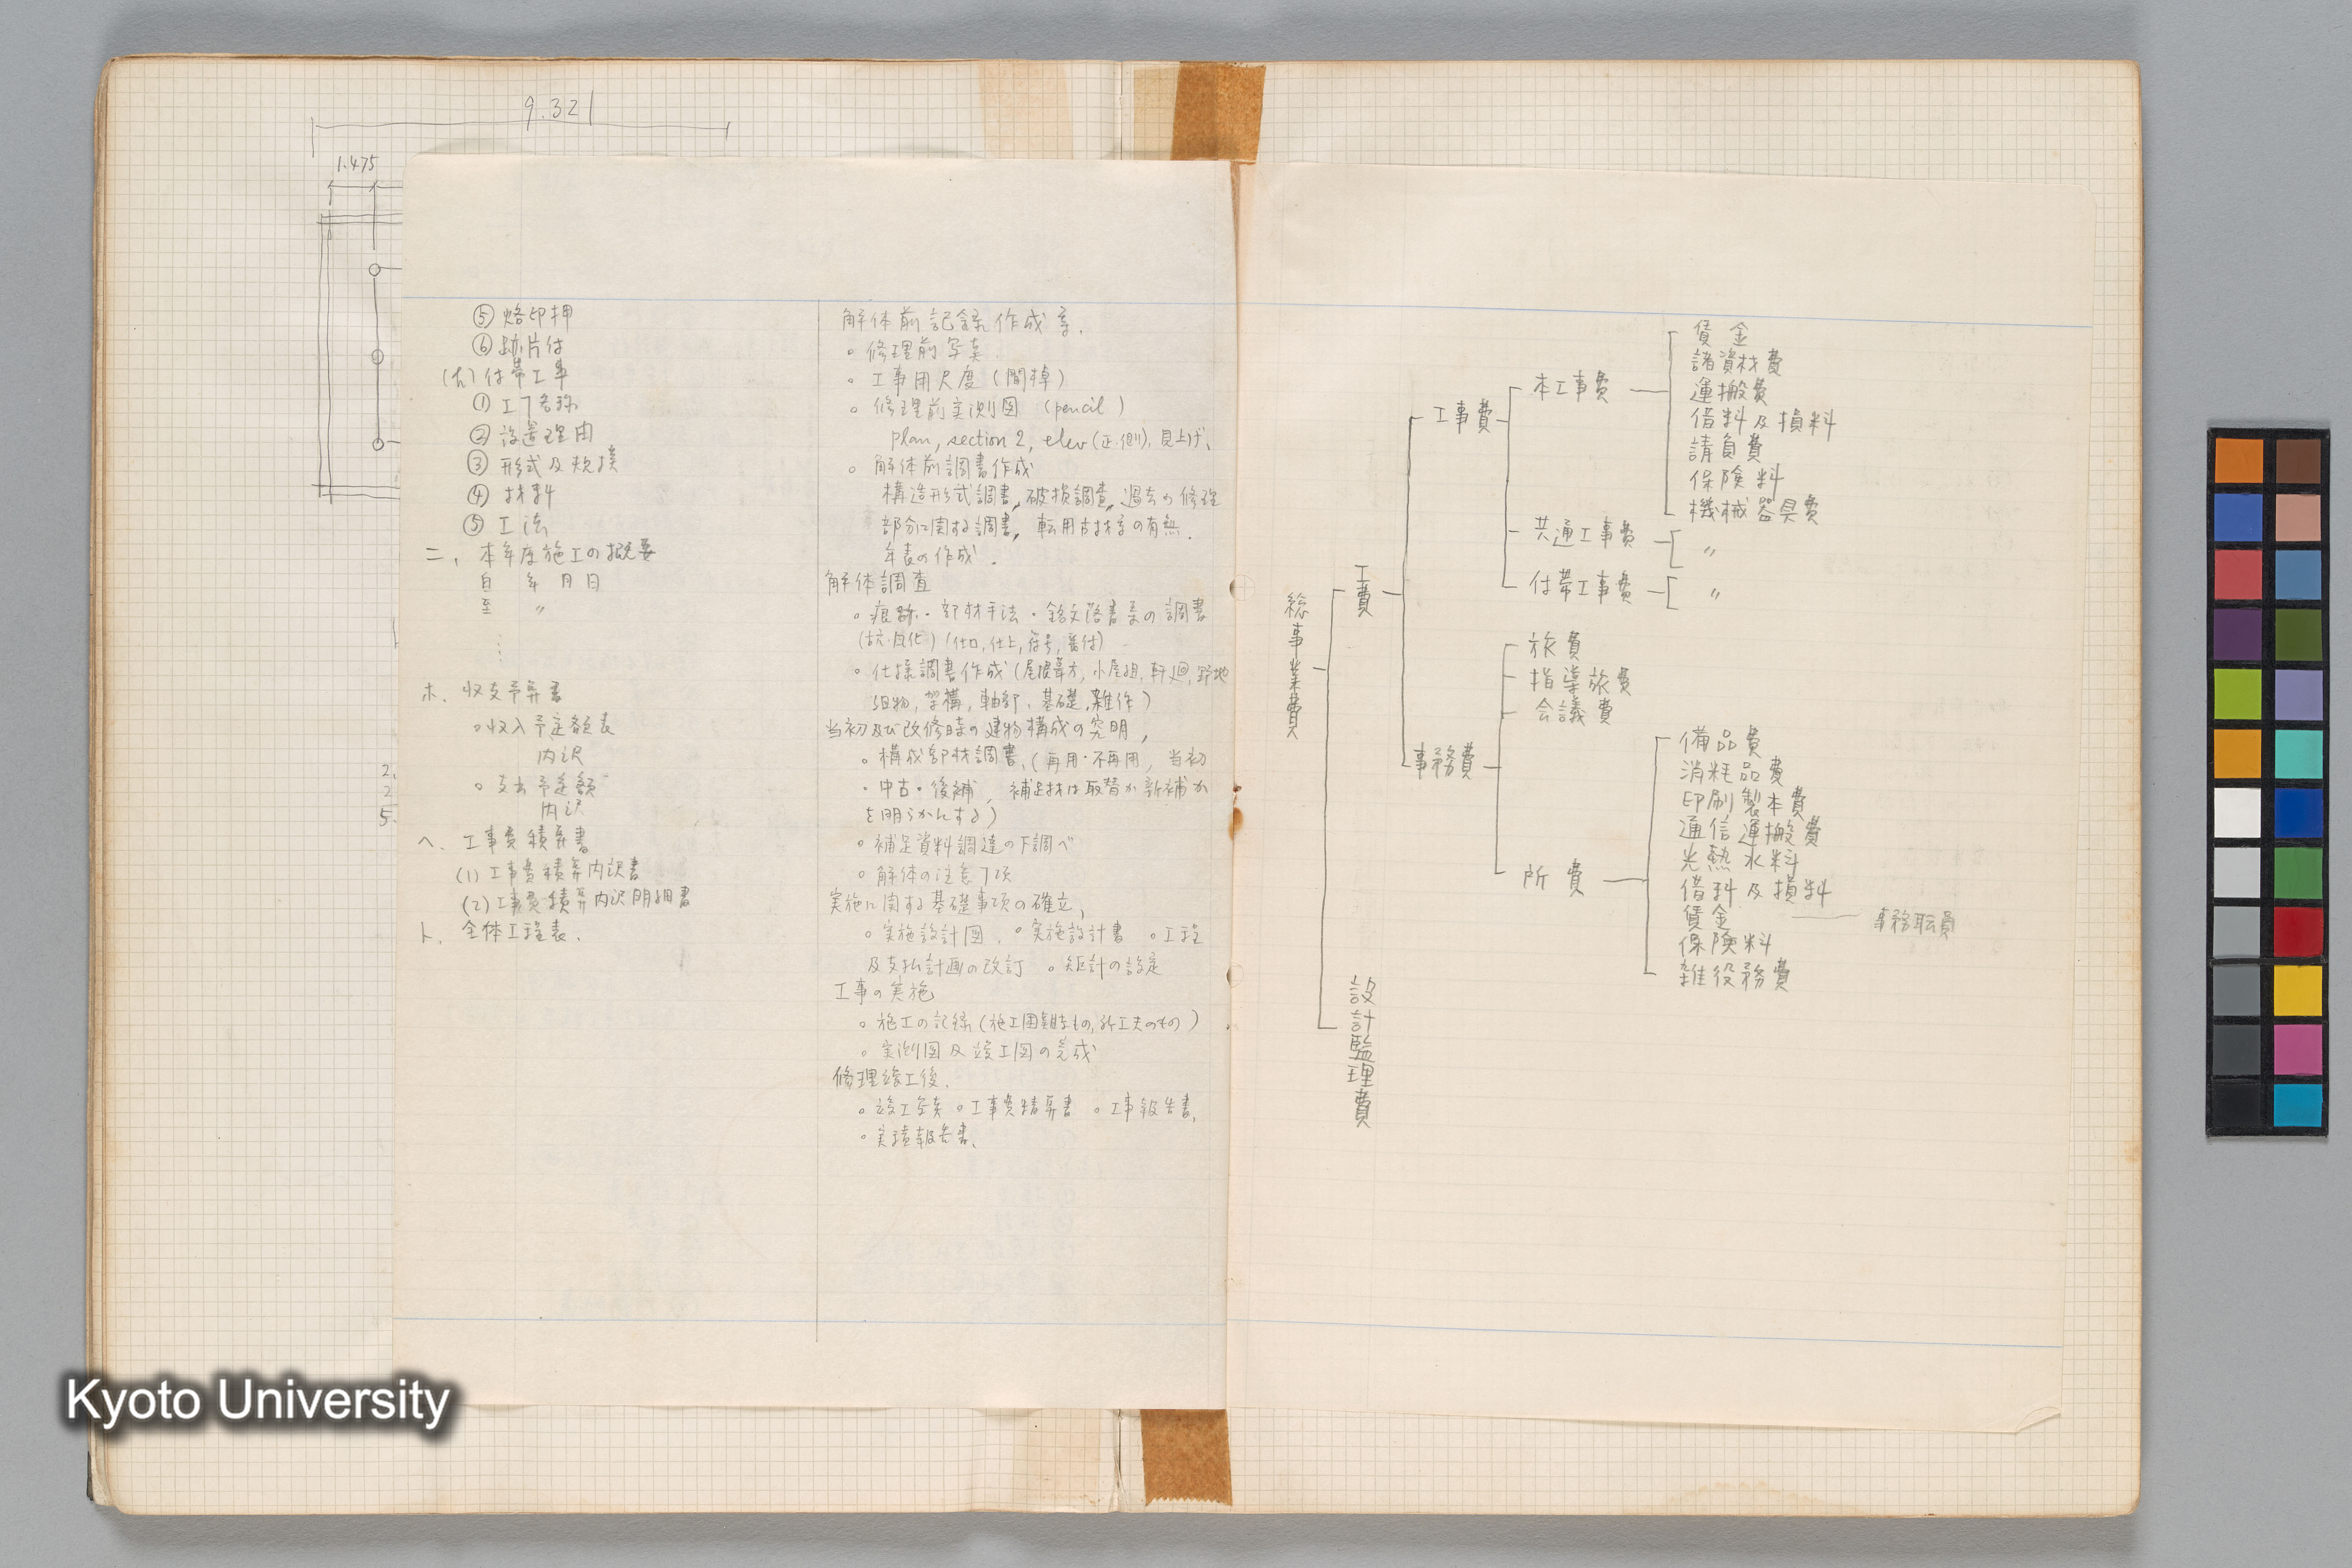 9.321
1.475
⑤ 烙印押
⑥ 跡片付
(六) 付帯工事
① 工事名称
② 設置理由
③ 形式及規模
④ 材料
⑤ 工法
二、本年度施工の概要
自 年 月 日
至 〃
ホ、収支予算書
○収入予定額表
内訳
○支出予定額
内訳
ヘ、工事費積算書
(1) 工事費積算内訳書
(2) 工事費積算内訳明細書
ト、全体工程表、
2.
2
5.
解体前記録作成等、
○ 修理前写真、
○ 工事用尺度(間棹)
○ 修理前実測図 (pencil)
plan, section 2, elev(正・側), 見上げ、
○ 解体前調書作成
構造形式調書, 破損調査, 過去の修理
部分に関する調書, 転用古材等の有無、
年表の作成、
解体調査
○ 痕跡・部材手法・銘文落書等の調書
(古・風化) (仕口, 仕上, 符号, 番付)
○ 仕様調書作成 (屋根葺方, 小屋組, 軒廻, 野地
組物, 架構, 軸部, 基礎, 雑作)
当初及び改修時の建物構成の究明,
○ 構成部材調書、(再用・不再用, 当初
・中古・後補, 補足材は取替か新補か
を明らかにする)
○ 補足資料調達の下調べ
○ 解体の注意事項
実施に関する基礎事項の確立,
○ 実施設計図、○ 実施設計書 ○ 工程
及支払計画の改訂 ○ 矩計の設定
工事の実施
○ 施工の記録 (施工困難なもの, 新工夫のもの)
○ 実測図及竣工図の完成
修理竣工後、
○ 竣工写真 ○ 工事費精算書 ○ 工事報告書、
○ 実績報告書、
総事業費
工費
工事費
本工事費
賃金
諸資材費
運搬費
借料及損料
請負費
保険料
機械器具費
共通工事費 〃
付帯工事費 〃
事務費
旅費
指導旅費
会議費
所費
備品費
消耗品費
印刷製本費
通信運搬費
光熱水料
借料及損料
賃金 事務職員
保険料
雑役務費
設計監理費
Kyoto University